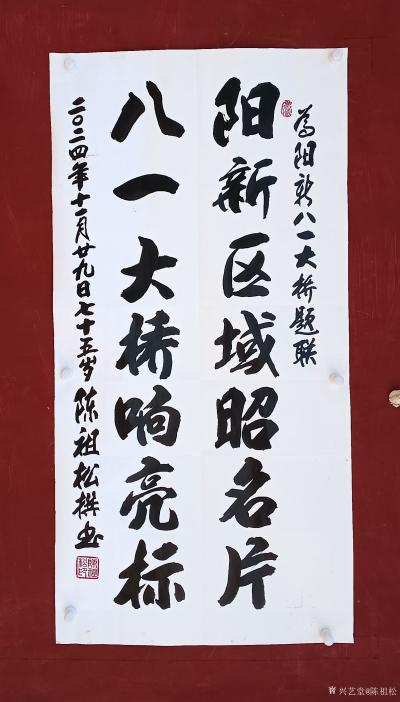 为阳新八一大桥题联
阳新区域昭名片
八一大桥响亮标
二〇二四年十一月廿九日七十五岁陈祖松撰书
兴艺堂@陈祖松